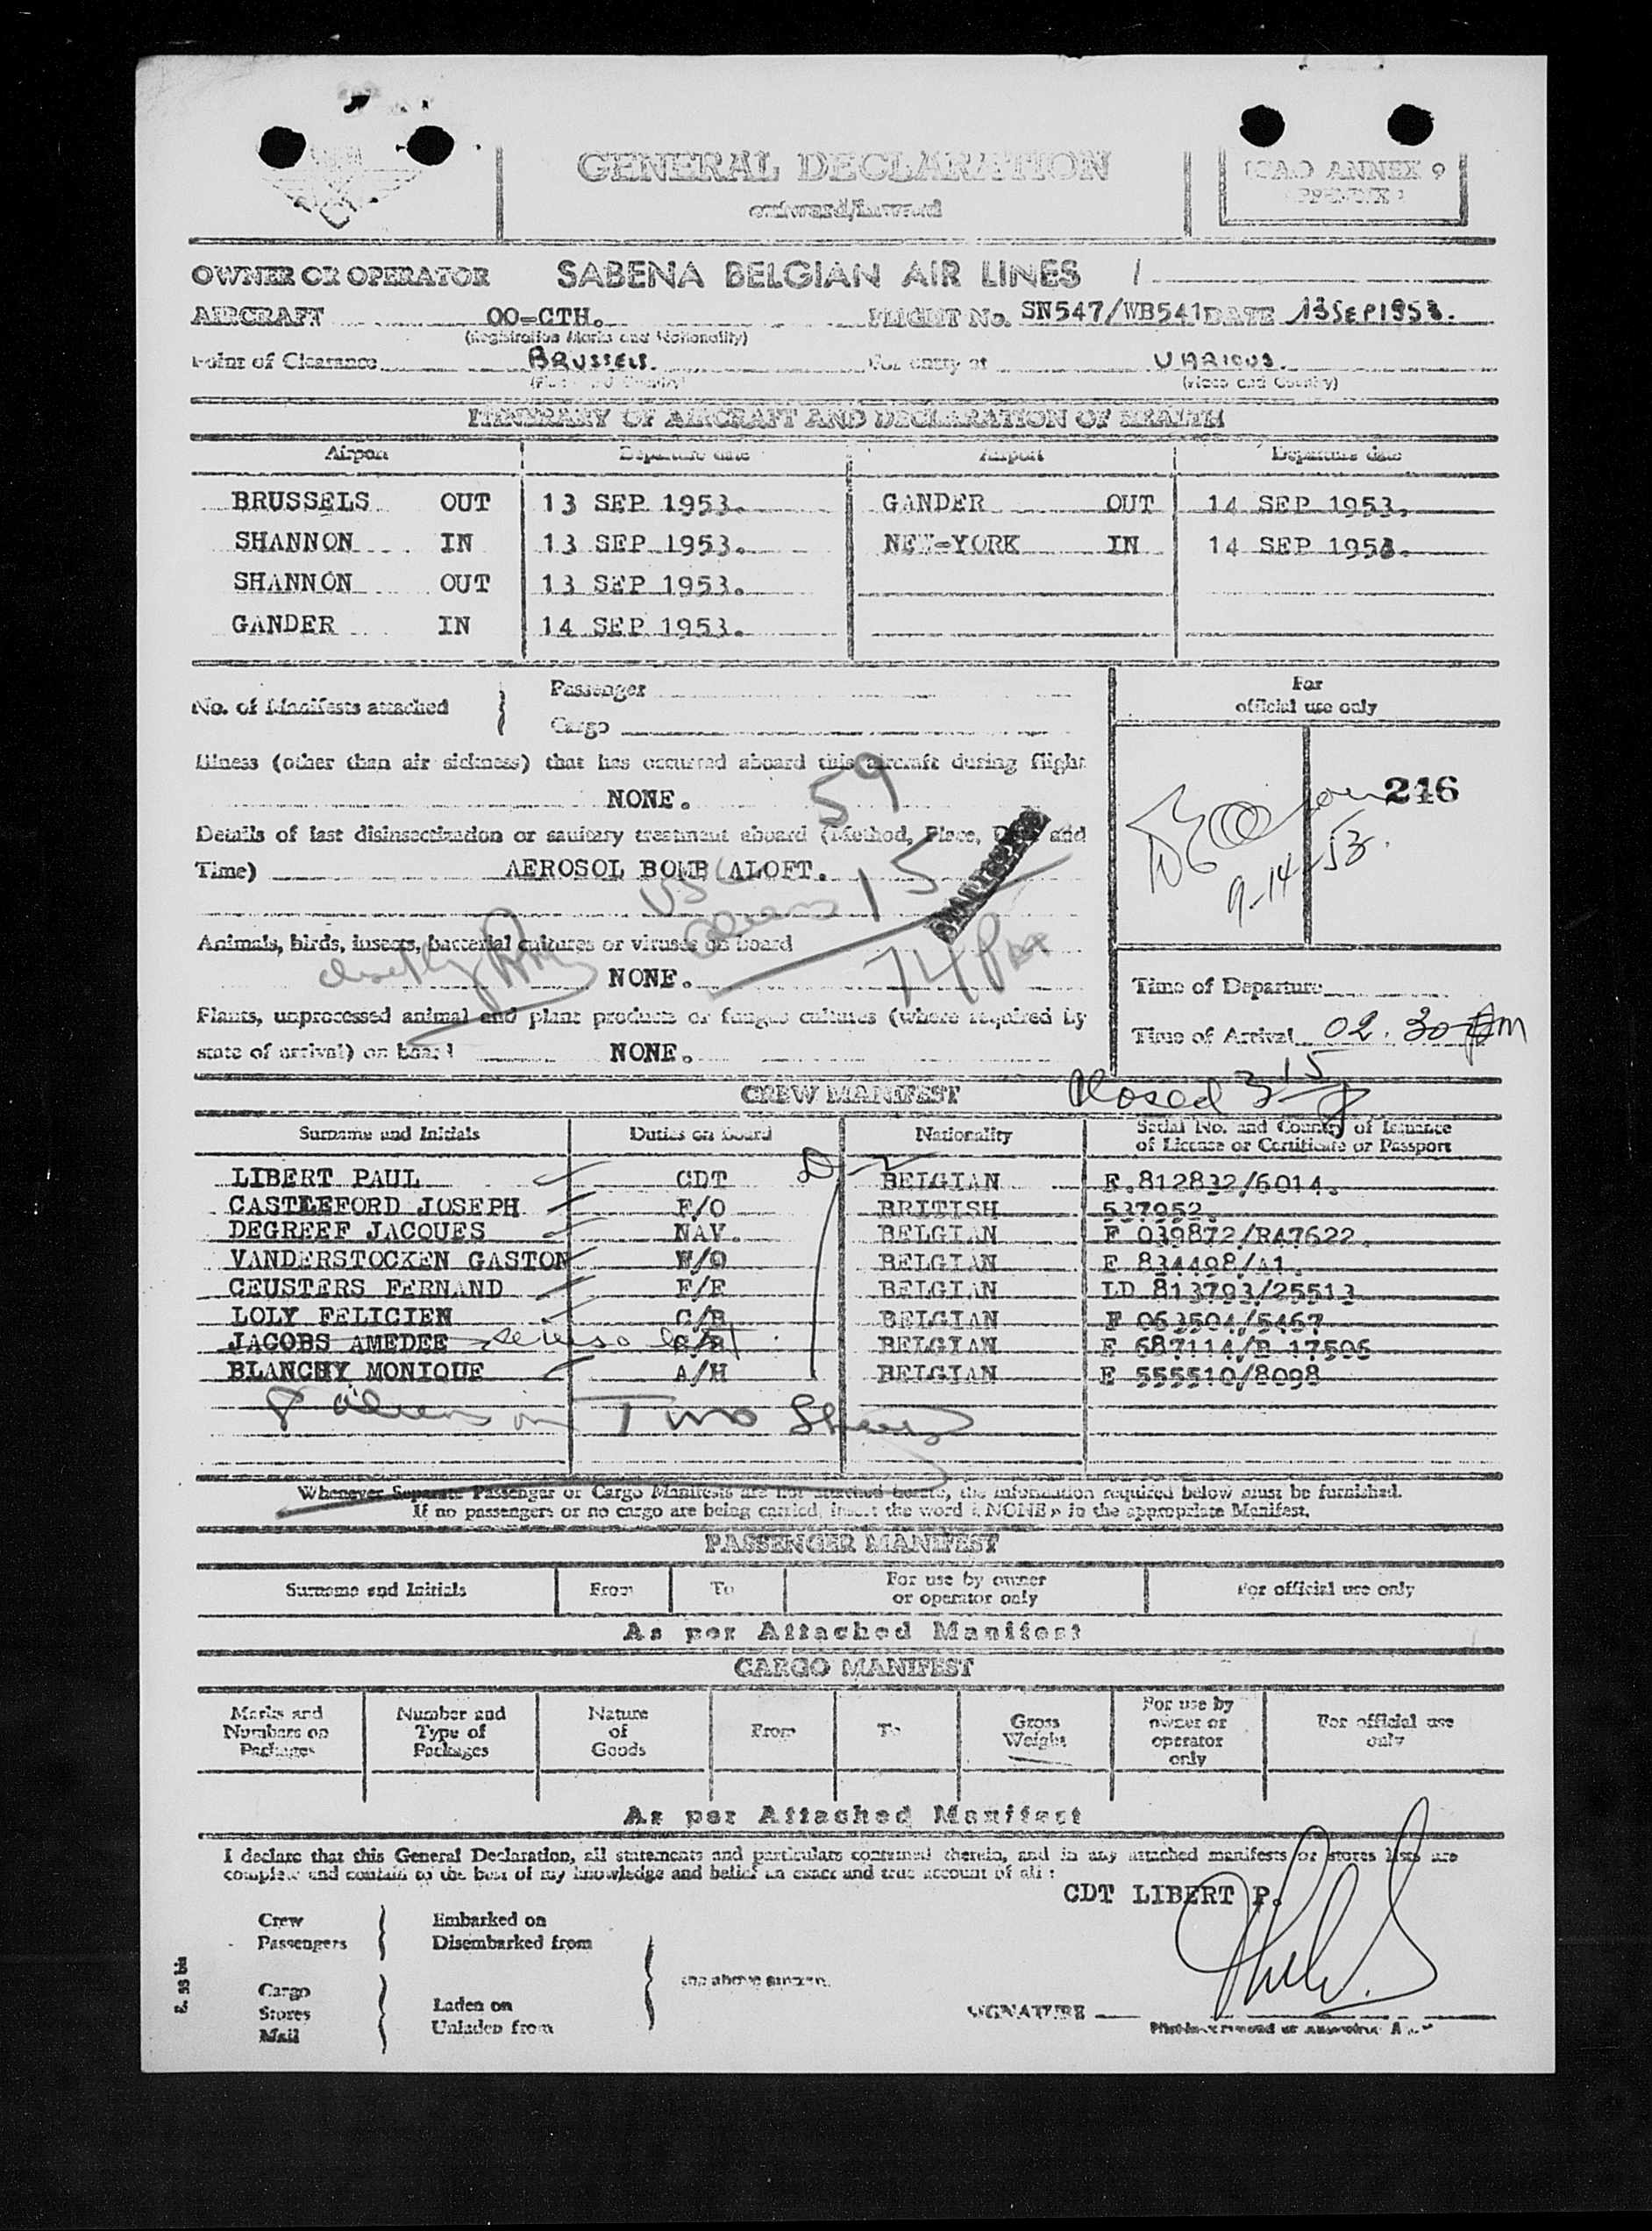 GENERAL DECLARATION
outward/inward
ICAO ANNEX 9
APPENDIX 1
OWNER OR OPERATOR SABENA BELGIAN AIR LINES
AIRCRAFT OO-CTH. FLIGHT No. SN547/WB541 DATE 13 SEP 1953.
(Registration Marks and Nationality)
Point of Clearance BRUSSELS. For entry at VARIOUS.
(Place and Country) (Place and Country)
ITINERARY OF AIRCRAFT AND DECLARATION OF HEALTH
Airport Departure date Airport Departure date
BRUSSELS OUT 13 SEP 1953. GANDER OUT 14 SEP 1953.
SHANNON IN 13 SEP 1953. NEW-YORK IN 14 SEP 1953.
SHANNON OUT 13 SEP 1953.
GANDER IN 14 SEP 1953.
No. of Manifests attached
Passenger
Cargo
For
official use only
Illness (other than air sickness) that has occurred aboard this aircraft during flight
NONE.
59
246
Details of last disinsectization or sanitary treatment aboard (Method, Place, Date and
Time) AEROSOL BOMB ALOFT.
9-14-53.
USC
Aliens 15
74 Pax
Animals, birds, insects, bacterial cultures or viruses on board
NONE.
Plants, unprocessed animal and plant products or fungus cultures (where required by
state of arrival) on board NONE.
Time of Departure
Time of Arrival 02.30 Pm
Closed 3 15 P
CREW MANIFEST
Surname and Initials Duties on board Nationality Serial No. and Country of Issuance
of License or Certificate or Passport
LIBERT PAUL CDT BELGIAN F.812832/6014.
CASTLEFORD JOSEPH F/O BRITISH 537952.
DEGREEF JACQUES NAV. BELGIAN F 039872/RA7622.
VANDERSTOCKEN GASTON W/O BELGIAN E 834498/A1.
CEUSTERS FERNAND F/E BELGIAN LD 813793/25513
LOLY FELICIEN C/B BELGIAN F 063504/5467
JACOBS AMEDEE BELGIAN E 687114/B 17506
BLANCHY MONIQUE A/H BELGIAN E 555510/8098
8 aliens on Two Sheets
Whenever Separate Passenger or Cargo Manifests are not attached hereto, the information required below must be furnished.
If no passengers or no cargo are being carried, insert the word « NONE » in the appropriate Manifest.
PASSENGER MANIFEST
Surname and Initials From To For use by owner
or operator only For official use only
As per Attached Manifest
CARGO MANIFEST
Marks and
Numbers on
Packages
Number and
Type of
Packages
Nature
of
Goods
From
To
Gross
Weight
For use by
owner or
operator
only
For official use
only
As per Attached Manifest
I declare that this General Declaration, all statements and particulars contained therein, and in any attached manifests or stores lists are
complete and contain to the best of my knowledge and belief an exact and true account of all :
CDT LIBERT P.
Crew
Passengers
Embarked on
Disembarked from
Cargo
Stores
Mail
Laden on
Unladen from
the above aircraft.
SIGNATURE
E. 55 bis